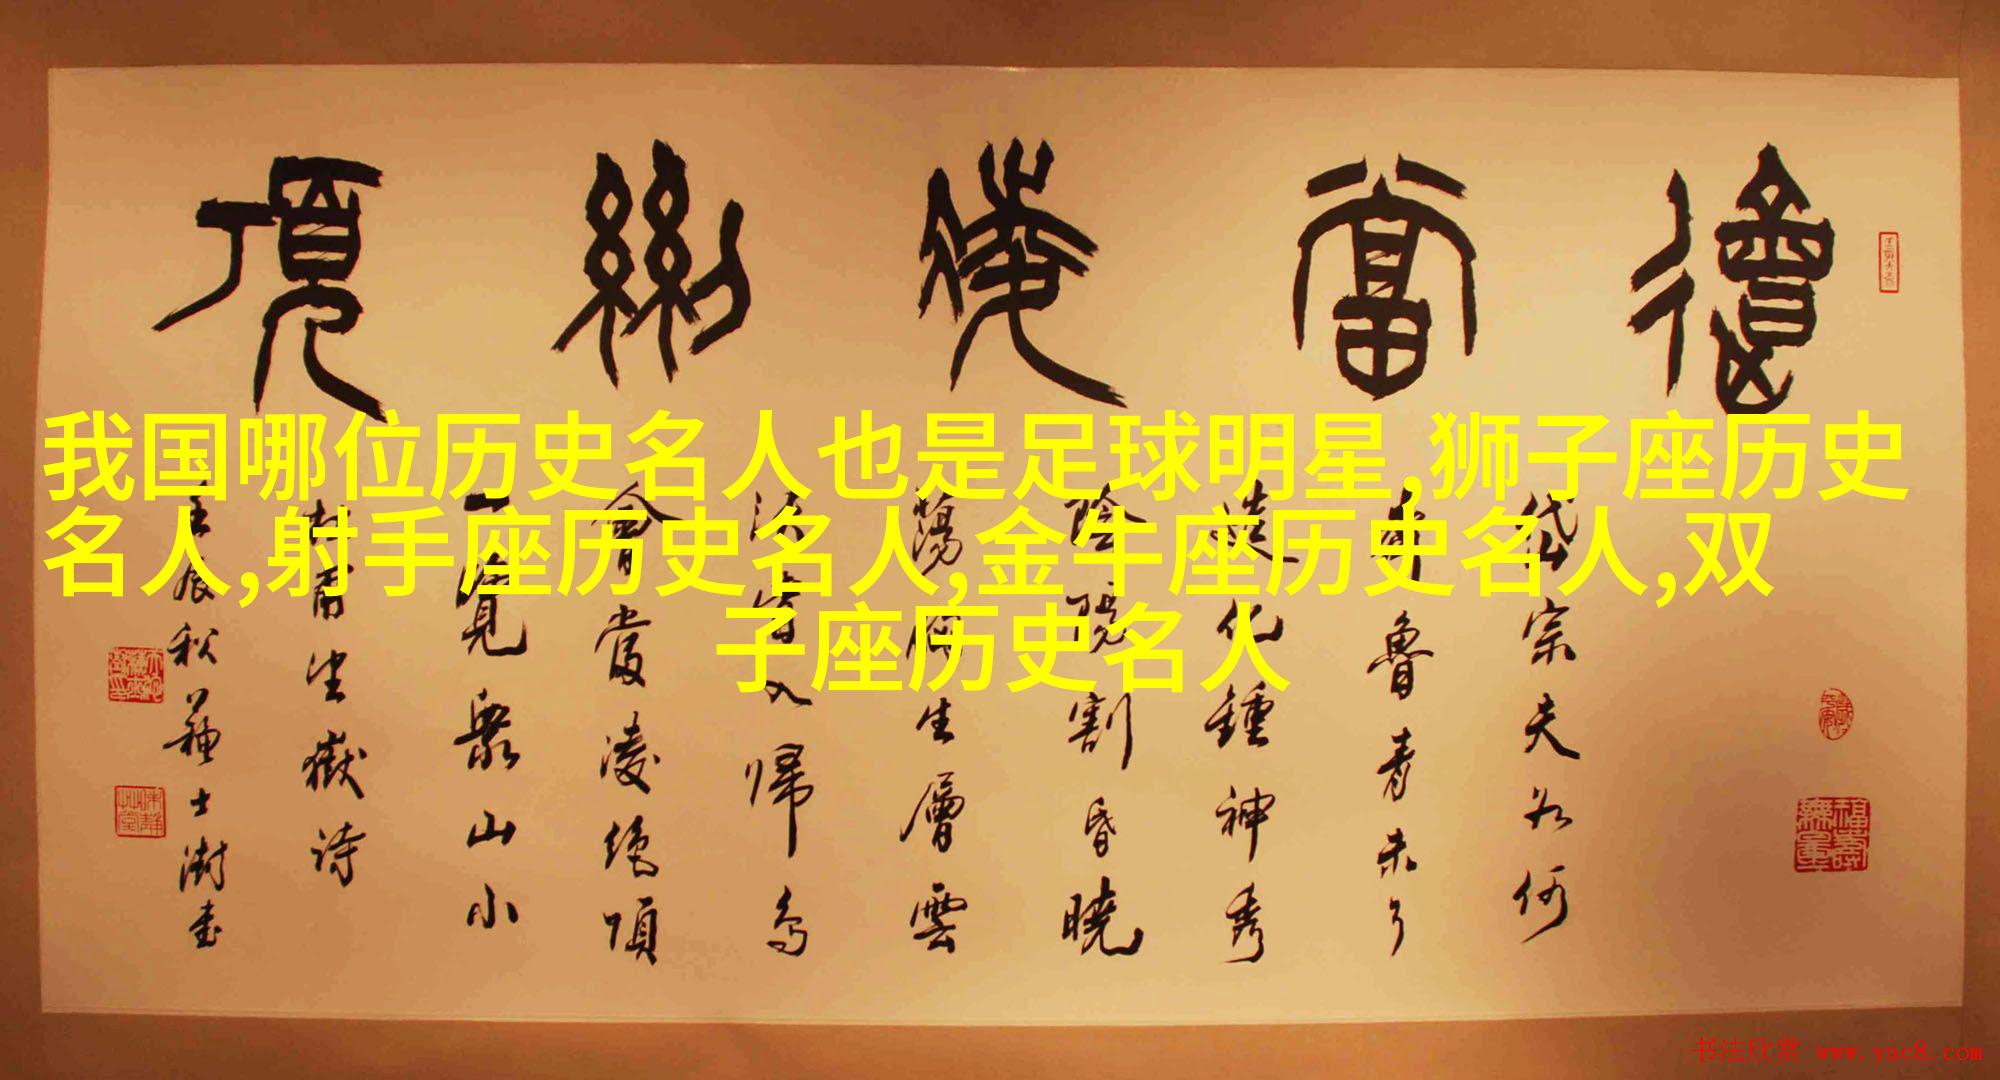 會當凌絕頂
岱宗夫如何
齊魯青未了
造化鍾神秀
陰陽割昏曉
蕩胸生層雲
決眥入歸鳥
會當凌絕頂
一覽眾山小
杜甫望嶽詩
壬辰秋蘇士澍書
我国哪位历史名人也是足球明星,狮子座历史
名人,射手座历史名人,金牛座历史名人,双
子座历史名人
福壽無量
书法欣赏 www.yac8.com